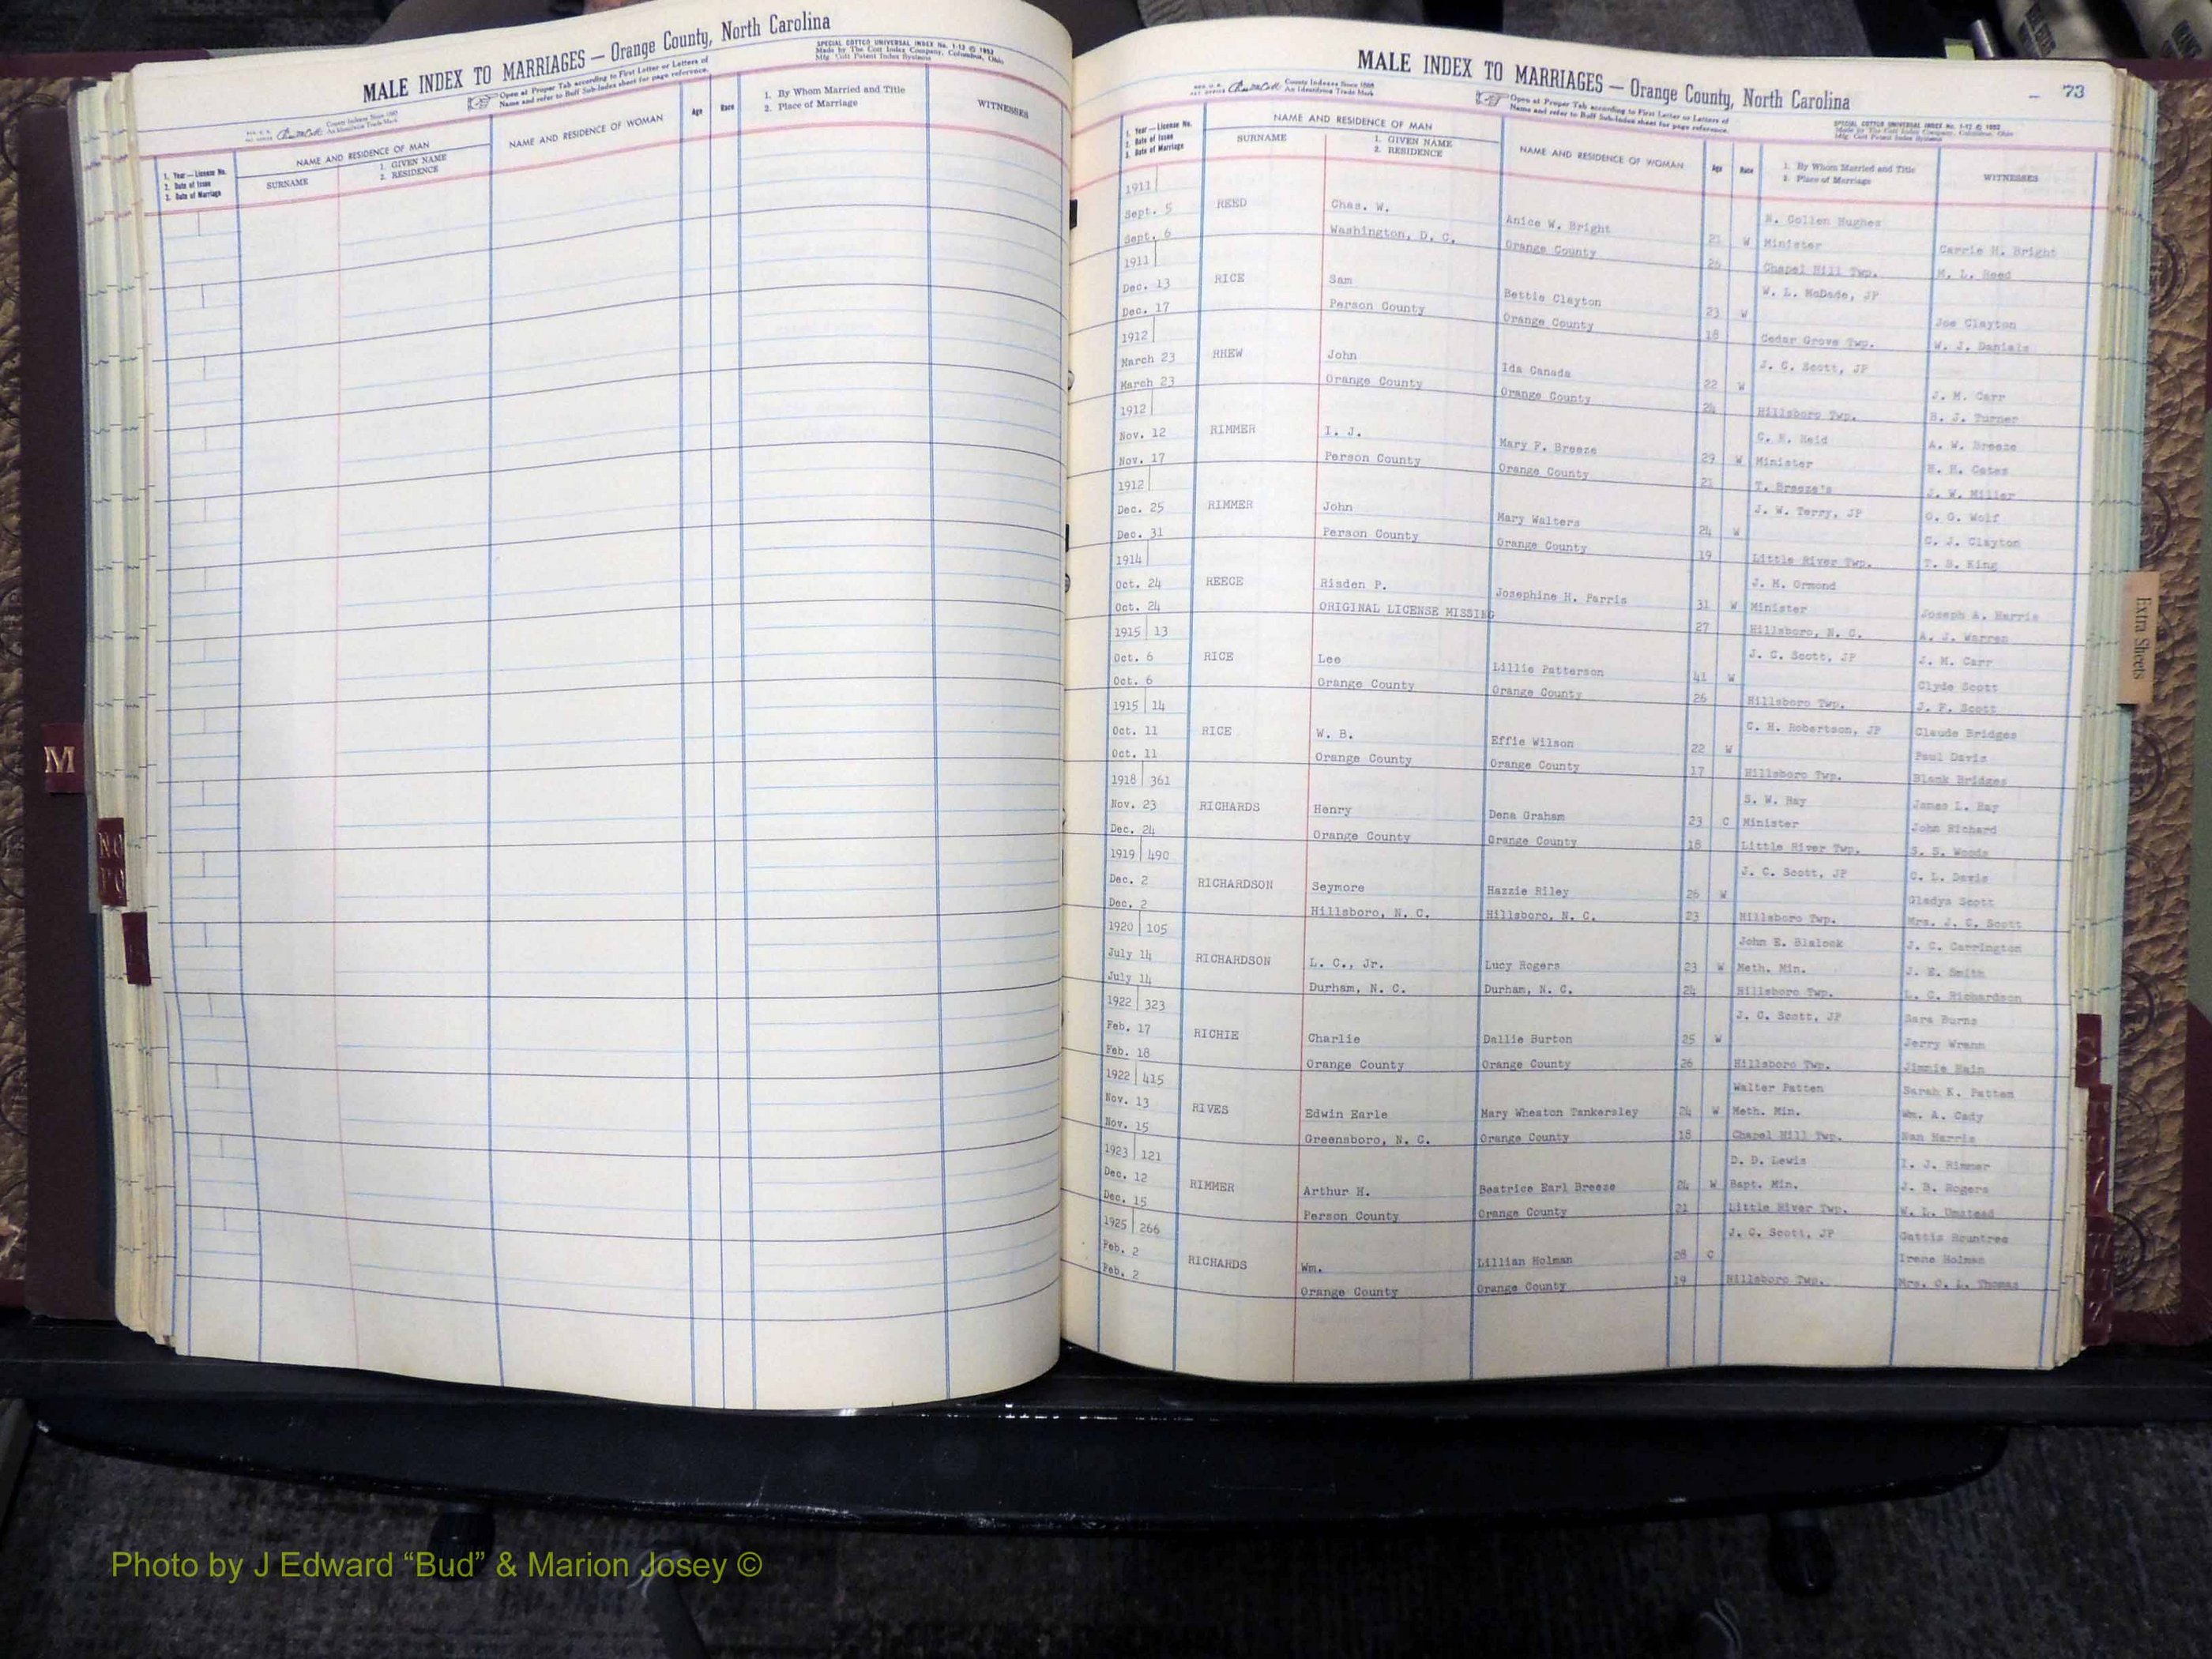 MALE INDEX TO MARRIAGES — Orange County, North Carolina
SPECIAL COTTCO UNIVERSAL INDEX No. 1-12 © 1952
Made by The Cott Index Company, Columbus, Ohio
Mfg. Cott Patent Index Systems
County Indexes Since 1888
An Identifying Trade Mark
Open at Proper Tab according to First Letter or Letters of
Name and refer to Buff Sub-Index sheet for page reference.
1. Year—License No.
2. Date of Issue
3. Date of Marriage
NAME AND RESIDENCE OF MAN
SURNAME
1. GIVEN NAME
2. RESIDENCE
NAME AND RESIDENCE OF WOMAN
Age
Race
1. By Whom Married and Title
2. Place of Marriage
WITNESSES
MALE INDEX TO MARRIAGES — Orange County, North Carolina
73
County Indexes Since 1888
An Identifying Trade Mark
Open at Proper Tab according to First Letter or Letters of
Name and refer to Buff Sub-Index sheet for page reference.
SPECIAL COTTCO UNIVERSAL INDEX No. 1-12 © 1952
Made by The Cott Index Company, Columbus, Ohio
Mfg. Cott Patent Index Systems
1. Year—License No.
2. Date of Issue
3. Date of Marriage
NAME AND RESIDENCE OF MAN
SURNAME
1. GIVEN NAME
2. RESIDENCE
NAME AND RESIDENCE OF WOMAN
Age
Race
1. By Whom Married and Title
2. Place of Marriage
WITNESSES
1911 Collen Hughes
Sept. 5 REED Chas. W. Anice W. Bright W Minister Carrie H. Bright
Sept. 6 Washington, D. C. Orange County 26 Chapel Hill Twp. M. L. Reed
1911 W. L. McDade, JP
Dec. 13 RICE Sam Bettie Clayton 23 W Joe Clayton
Dec. 17 Person County Orange County 18 Cedar Grove Twp. W. J. Daniels
1912 J. C. Scott, JP
March 23 RHEW John Ida Canada 22 W J. M. Carr
March 23 Orange County Orange County 24 Hillsboro Twp. B. J. Turner
1912 Reid A. W. Breeze
Nov. 12 RIMMER I. J. Mary F. Breeze 29 W Minister H. H. Cates
Nov. 17 Person County Orange County 21 T. Breeze's J. W. Miller
1912 J. W. Terry, JP G. G. Wolf
Dec. 25 RIMMER John Mary Walters 24 W C. J. Clayton
Dec. 31 Person County Orange County 19 Little River Twp. T. B. King
1914 J. M. Ormond
Oct. 24 REECE Risden P. Josephine H. Farris 31 W Minister Joseph A. Harris
Oct. 24 ORIGINAL LICENSE MISSING 27 Hillsboro, N. C. A. J. Warren
1915 13 J. C. Scott, JP J. M. Carr
Oct. 6 RICE Lee Lillie Patterson 41 W Clyde Scott
Oct. 6 Orange County Orange County 26 Hillsboro Twp. J. F. Scott
1915 14 C. H. Robertson, JP Claude Bridges
Oct. 11 RICE W. B. Effie Wilson 22 W Paul Davis
Oct. 11 Orange County Orange County 17 Hillsboro Twp. Blank Bridges
1918 361 S. W. Ray James L. Ray
Nov. 23 RICHARDS Henry Dena Graham 23 C Minister John Richard
Dec. 24 Orange County Orange County 18 Little River Twp. S. S. Woods
1919 490 J. C. Scott, JP C. L. Davis
Dec. 2 RICHARDSON Seymore Hazzie Riley 26 W Gladys Scott
Dec. 2 Hillsboro, N. C. Hillsboro, N. C. 23 Hillsboro Twp. Mrs. J. C. Scott
1920 105 John E. Blalock J. C. Carrington
July 14 RICHARDSON L. C., Jr. Lucy Rogers 23 W Meth. Min. J. E. Smith
July 14 Durham, N. C. Durham, N. C. 24 Hillsboro Twp. L. C. Richardson
1922 323 J. C. Scott, JP Sara Burns
Feb. 17 RICHIE Charlie Dallie Burton 25 W Jerry Wrann
Feb. 18 Orange County Orange County 26 Hillsboro Twp. Jimmie Hain
1922 415 Walter Patten Sarah K. Patten
Nov. 13 RIVES Edwin Earle Mary Wheaton Tankersley 24 W Meth. Min. Wm. A. Cady
Nov. 15 Greensboro, N. C. Orange County 18 Chapel Hill Twp. Nan Harris
1923 121 D. D. Lewis I. J. Rimmer
Dec. 12 RIMMER Arthur H. Beatrice Earl Breeze 24 W Bapt. Min. J. B. Rogers
Dec. 15 Person County Orange County 21 Little River Twp. W. L. Umstead
1925 266 J. C. Scott, JP Gattis Rountree
Feb. 2 RICHARDS Wm. Lillian Holman 28 C Irene Holman
Feb. 2 Orange County Orange County 19 Hillsboro Twp. Mrs. C. L. Thomas
Extra Sheets
M
Photo by J Edward “Bud” & Marion Josey ©